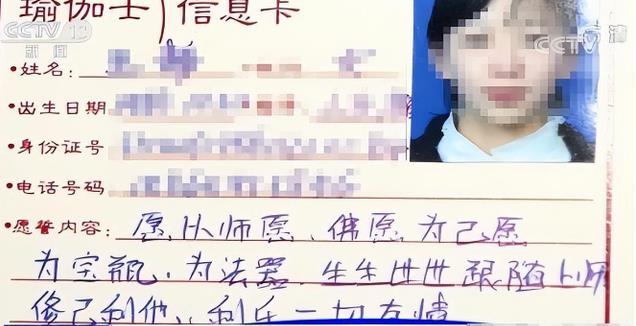 瑜伽士)信息卡
CCTV 13
新闻
CCTV 高清
•姓名:
•出生日期
•身份证号
•电话号码
•愿誓内容: 愿以师愿、佛愿为己愿
为宝瓶、为法器、生生世世跟随上师
修己利他、利乐一切有情